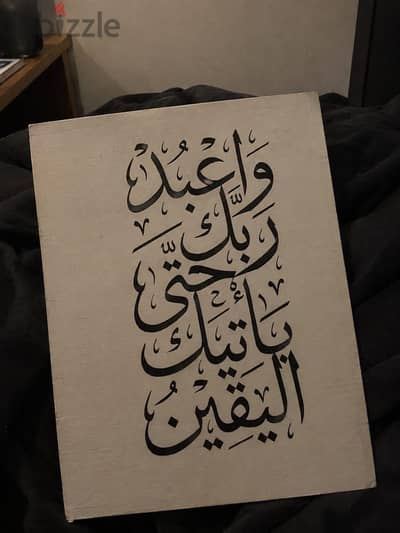 dubizzle
وَاعْبُدْ
رَبَّكَ
حَتَّىٰ
يَأْتِيَكَ
الْيَقِينُ